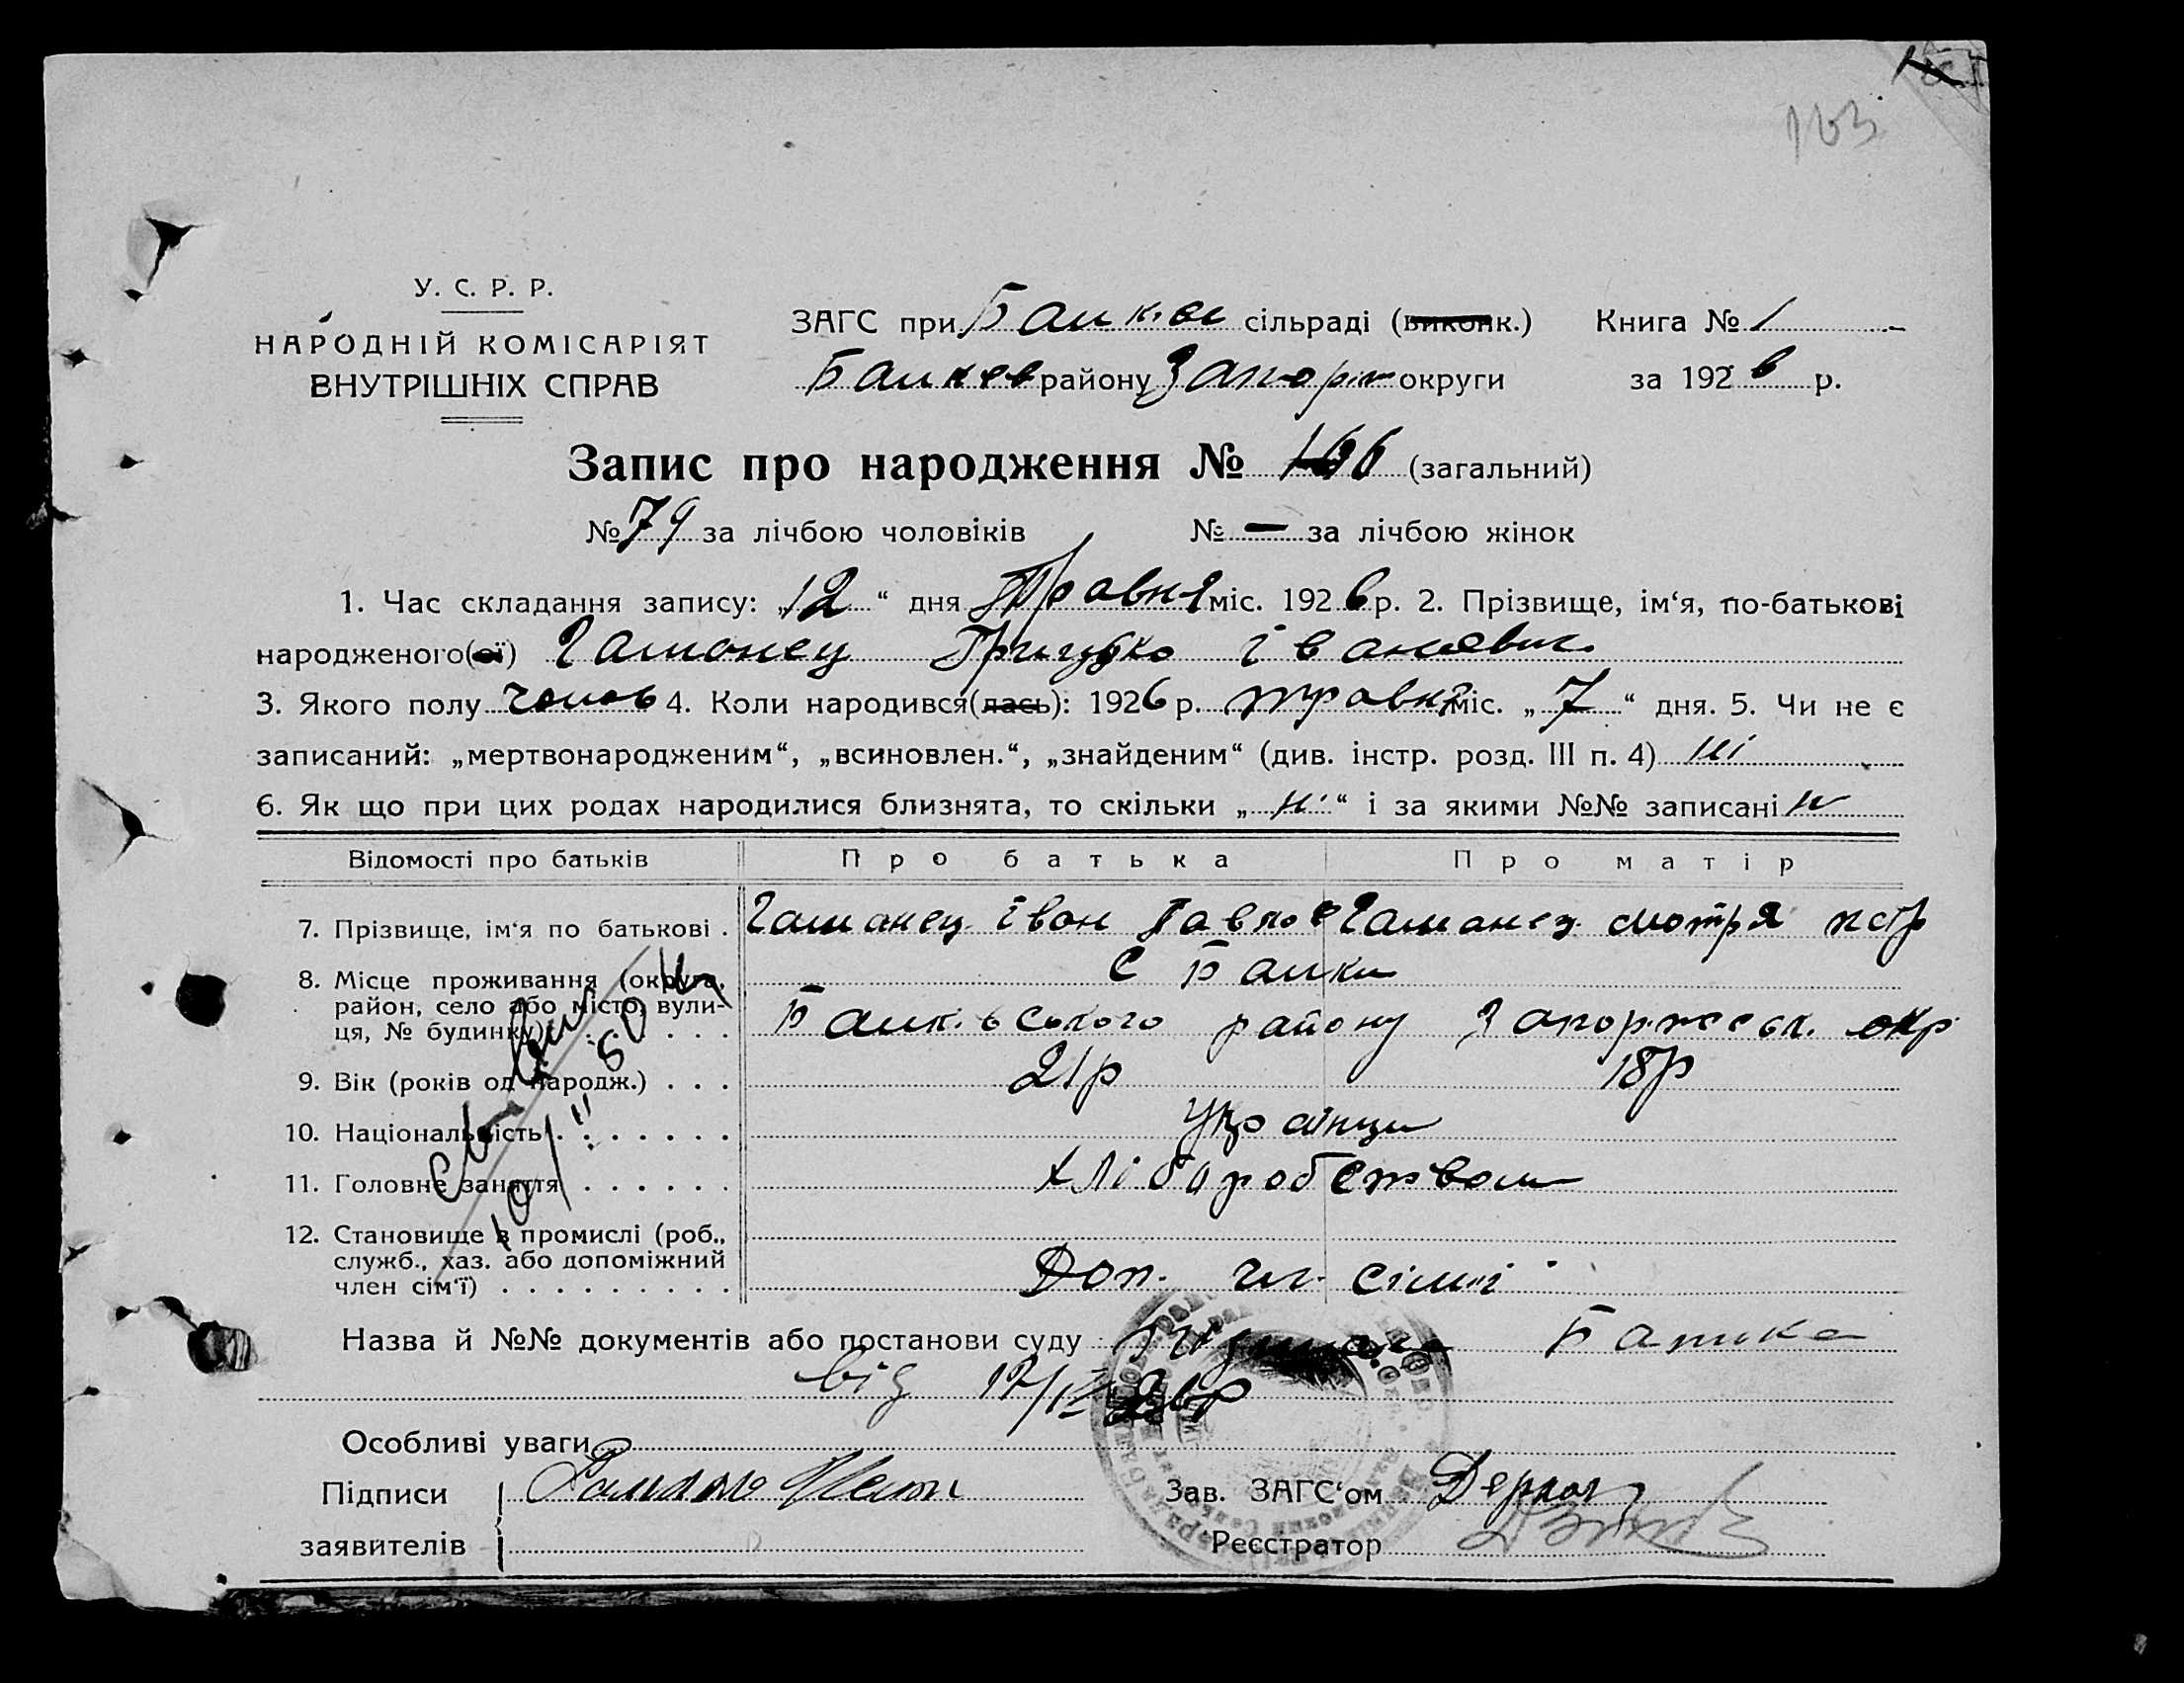 163
У. С. Р. Р.
НАРОДНІЙ КОМІСАРІЯТ
ВНУТРІШНІХ СПРАВ
ЗАГС при сільраді (виконк.) Книга № 1
району Запоріж округи за 1926 р.
Запис про народження № 166 (загальний)
№ 79 за лічбою чоловіків № — за лічбою жінок
1. Час складання запису: „12“ дня Травня міс. 1926 р. 2. Прізвище, ім‘я, по-батькові
народженого(ої) Гаманец Григорко Іванович
3. Якого полу чолов 4. Коли народився(лась): 1926 р. травня міс. „7“ дня. 5. Чи не є
записаний: „мертвонародженим“, „всиновлен.“, „знайденим“ (див. інстр. розд. III п. 4) ні
6. Як що при цих родах народилися близнята, то скільки „ні“ і за якими №№ записані ні
Відомості про батьків Про батька Про матір
7. Прізвище, ім‘я по батькові . Гаманец Іван Павло Гаманец мотря петр
8. Місце проживання (округа, С Балки
район, село або місто, вули-
ця, № будинку) . . . . Балківського району Запоржсськ. окр
9. Вік (років од народж.) . . . 21р 18р
10. Національність . . . . . . . Українци
11. Головне заняття . . . . . . хліборобством
12. Становище в промислі (роб.,
служб., хаз. або допоміжний
член сім‘ї) . . . . . . . . . Доп. чл. сімьі
Назва й №№ документів або постанови суду : Батька
від
Особливі уваги
Підписи Зав. ЗАГС‘ом Деркач
заявителів Реєстратор